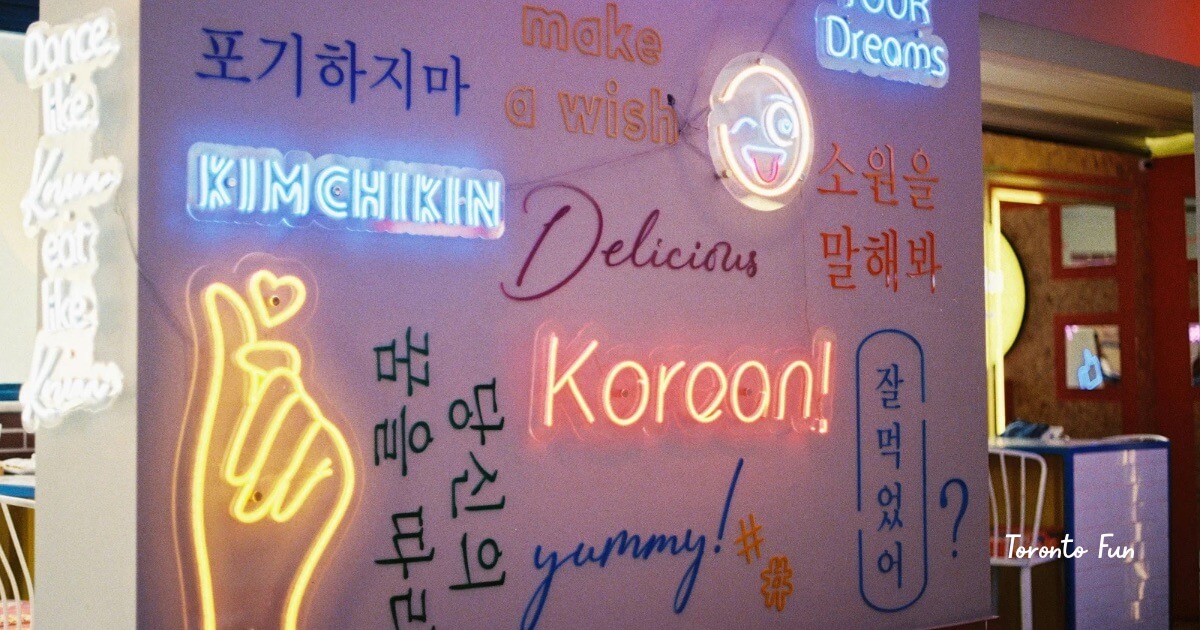 Dance
like
eat
like
포기하지마
make
a wish
YOUR
Dreams
KIMCHIKIN
Delicious
소원을
말해봐
Korean!
꿈을 따라
당신의
잘먹었어
?
yummy!
#
#
Toronto Fun